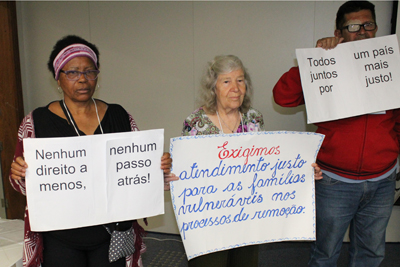 Nenhum
direito a
menos,
nenhum
passo
atrás!
Exigimos
atendimento justo
para as famílias
vulneráveis nos
processos de remoção.
Todos
juntos
por
um país
mais
justo!